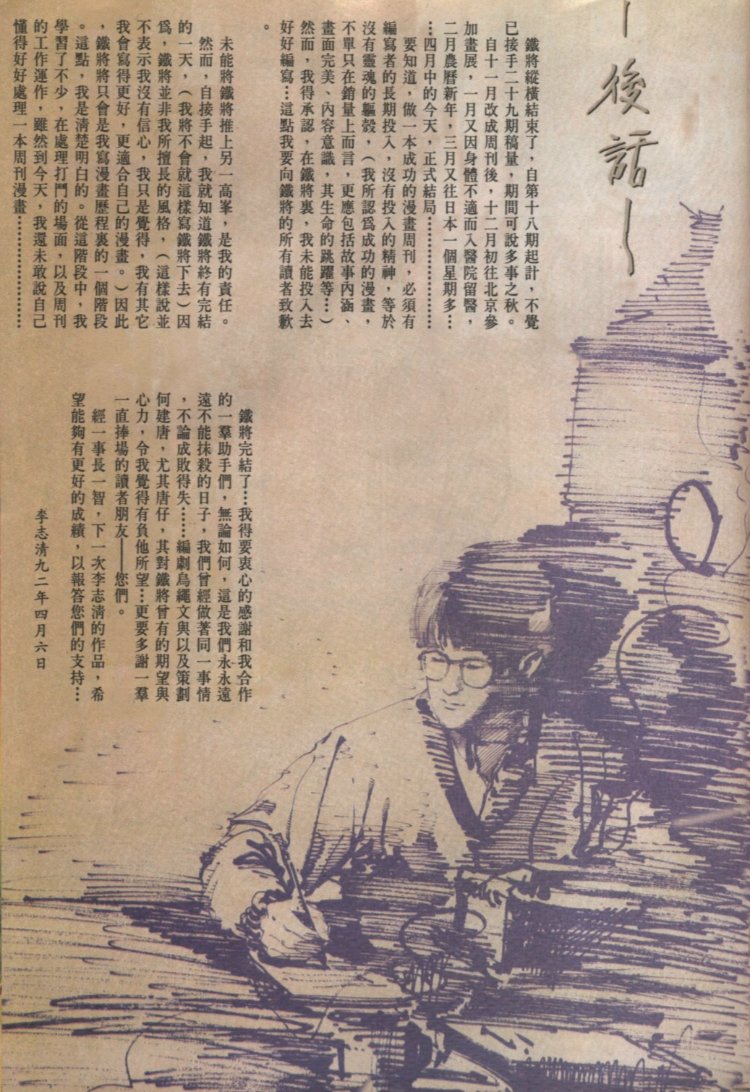 後話
鐵將縱橫結束了，自第十八期起計，不覺
已接手二十九期稿量，期間可說多事之秋。
自十一月改成周刊後，十二月初往北京參
加畫展，一月又因身體不適而入醫院留醫，
二月農曆新年，三月又往日本一個星期多…
…四月中的今天，正式結局………………
要知道，做一本成功的漫畫周刊，必須有
編寫者的長期投入，沒有投入的精神，等於
沒有靈魂的軀殼，（我所認為成功的漫畫，
不單只在銷量上而言，更應包括故事內涵、
畫面完美、內容意識，其生命的跳躍等…）
然而，我得承認，在鐵將裏，我未能投入去
好好編寫…這點我要向鐵將的所有讀者致歉
。
未能將鐵將推上另一高峯，是我的責任。
然而，自接手起，我就知道鐵將終有完結
的一天，（我將不會就這樣寫鐵將下去）因
為，鐵將並非我所擅長的風格，（這樣說並
不表示我沒有信心，我只是覺得，我有其它
我會寫得更好，更適合自己的漫畫。）因此
，鐵將將只會是我寫漫畫歷程裏的一個階段
。這點，我是清楚明白的。從這階段中，我
學習了不少，在處理打鬥的場面，以及周刊
的工作運作，雖然到今天，我還未敢說自己
懂得好好處理一本周刊漫畫………………
鐵將完結了…我得要衷心的感謝和我合作
的一羣助手們，無論如何，這是我們永永遠
遠不能抹殺的日子，我們曾經做著同一事情
，不論成敗得失……編劇烏繩文與以及策劃
何建唐，尤其唐仔，其對鐵將曾有的期望與
心力，令我覺得有負他所望…更要多謝一羣
一直捧場的讀者朋友——您們。
經一事長一智，下一次李志清的作品，希
望能夠有更好的成績，以報答您們的支持…
李志清九二年四月六日